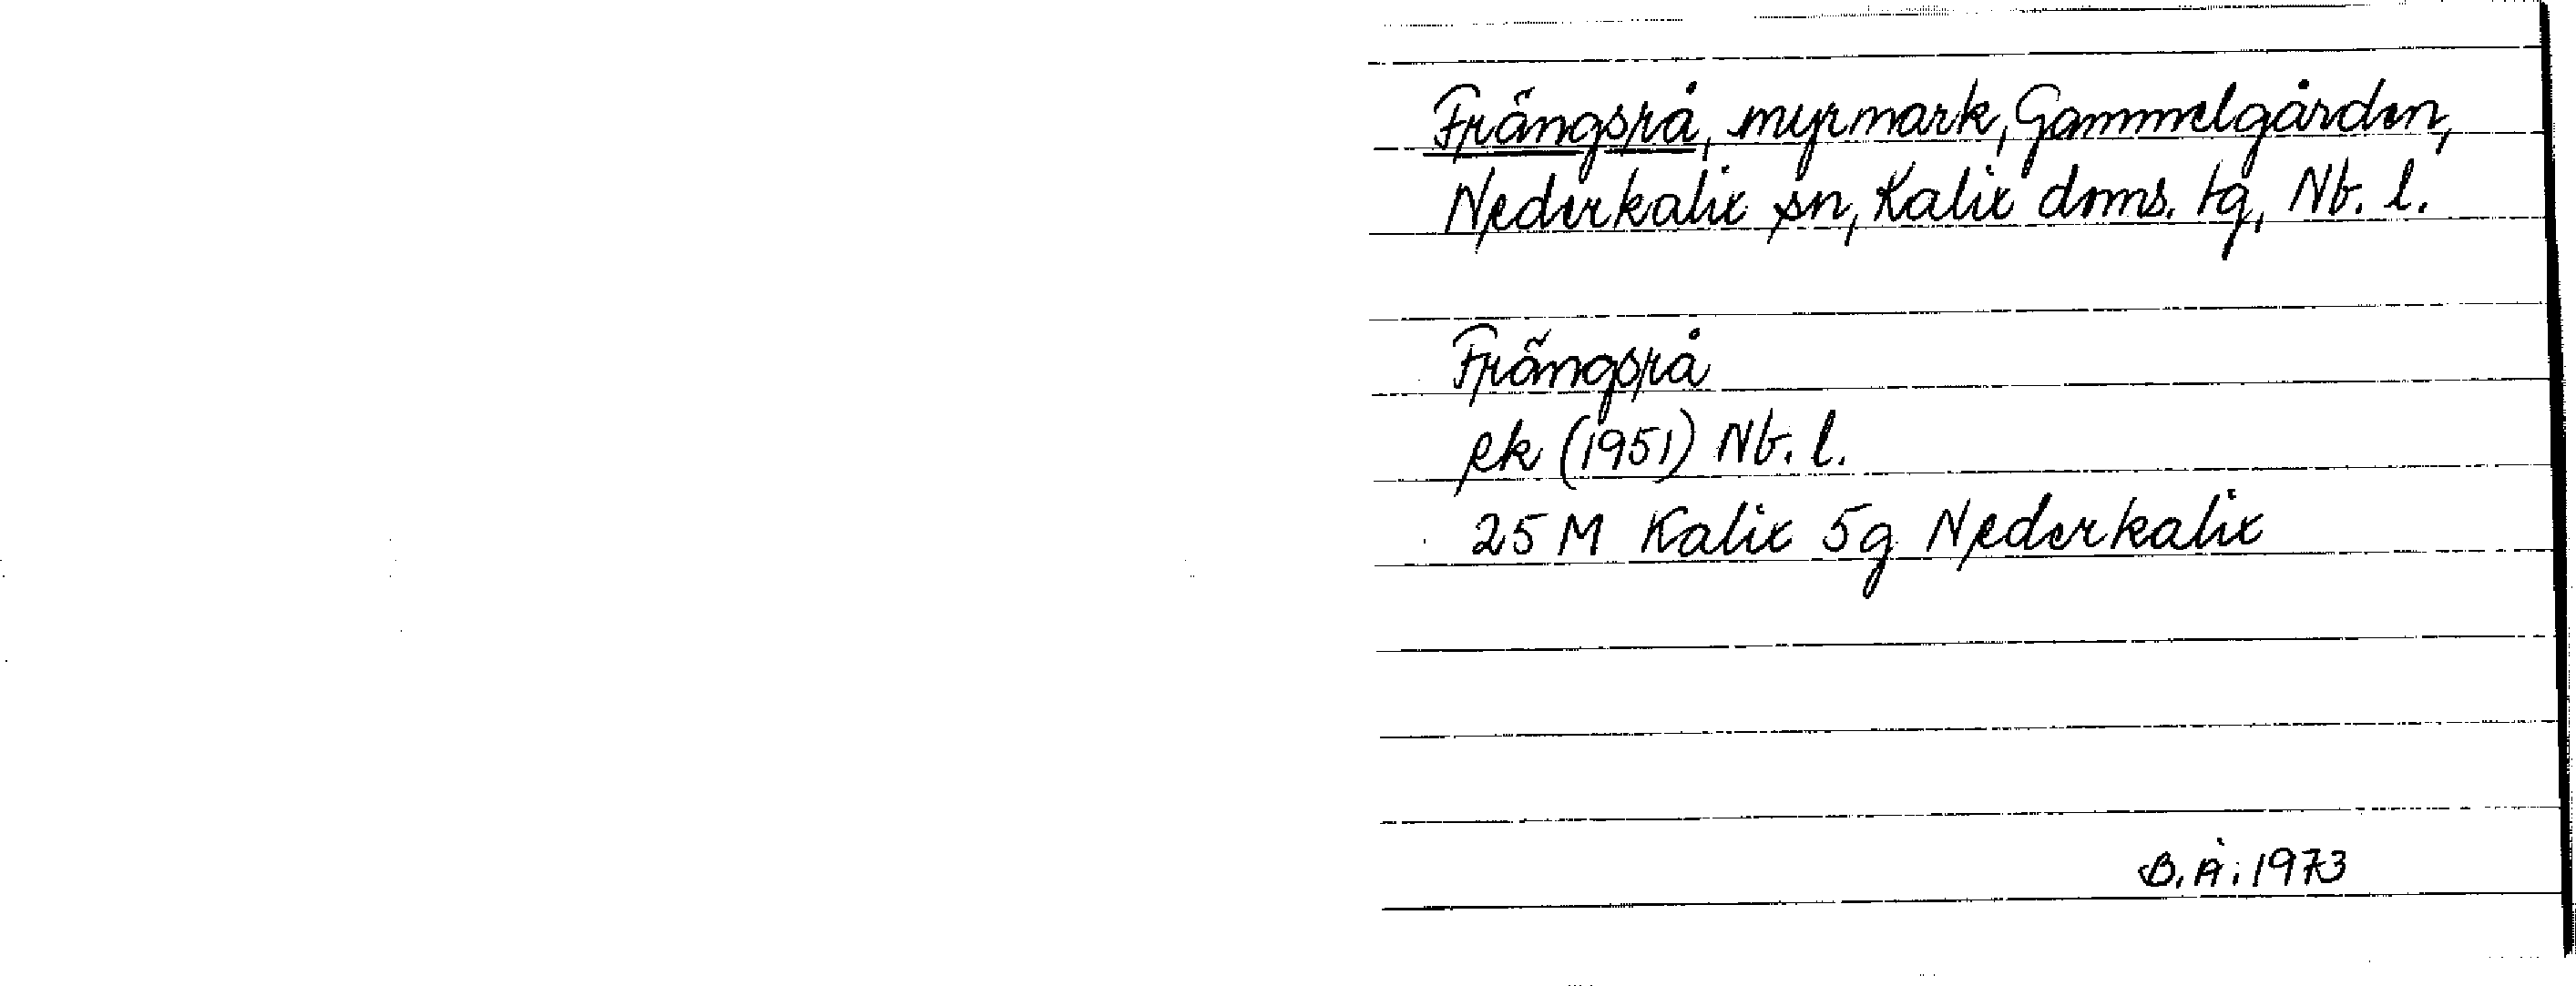 Frängsrå, myrmark, Gammelgården,
Nederkalix sn, Kalix doms. tg, Nb. l.
Frängsrå
ek (1951) Nb. l.
25 M Kalix 5g Nederkalix
B. Å. 1973